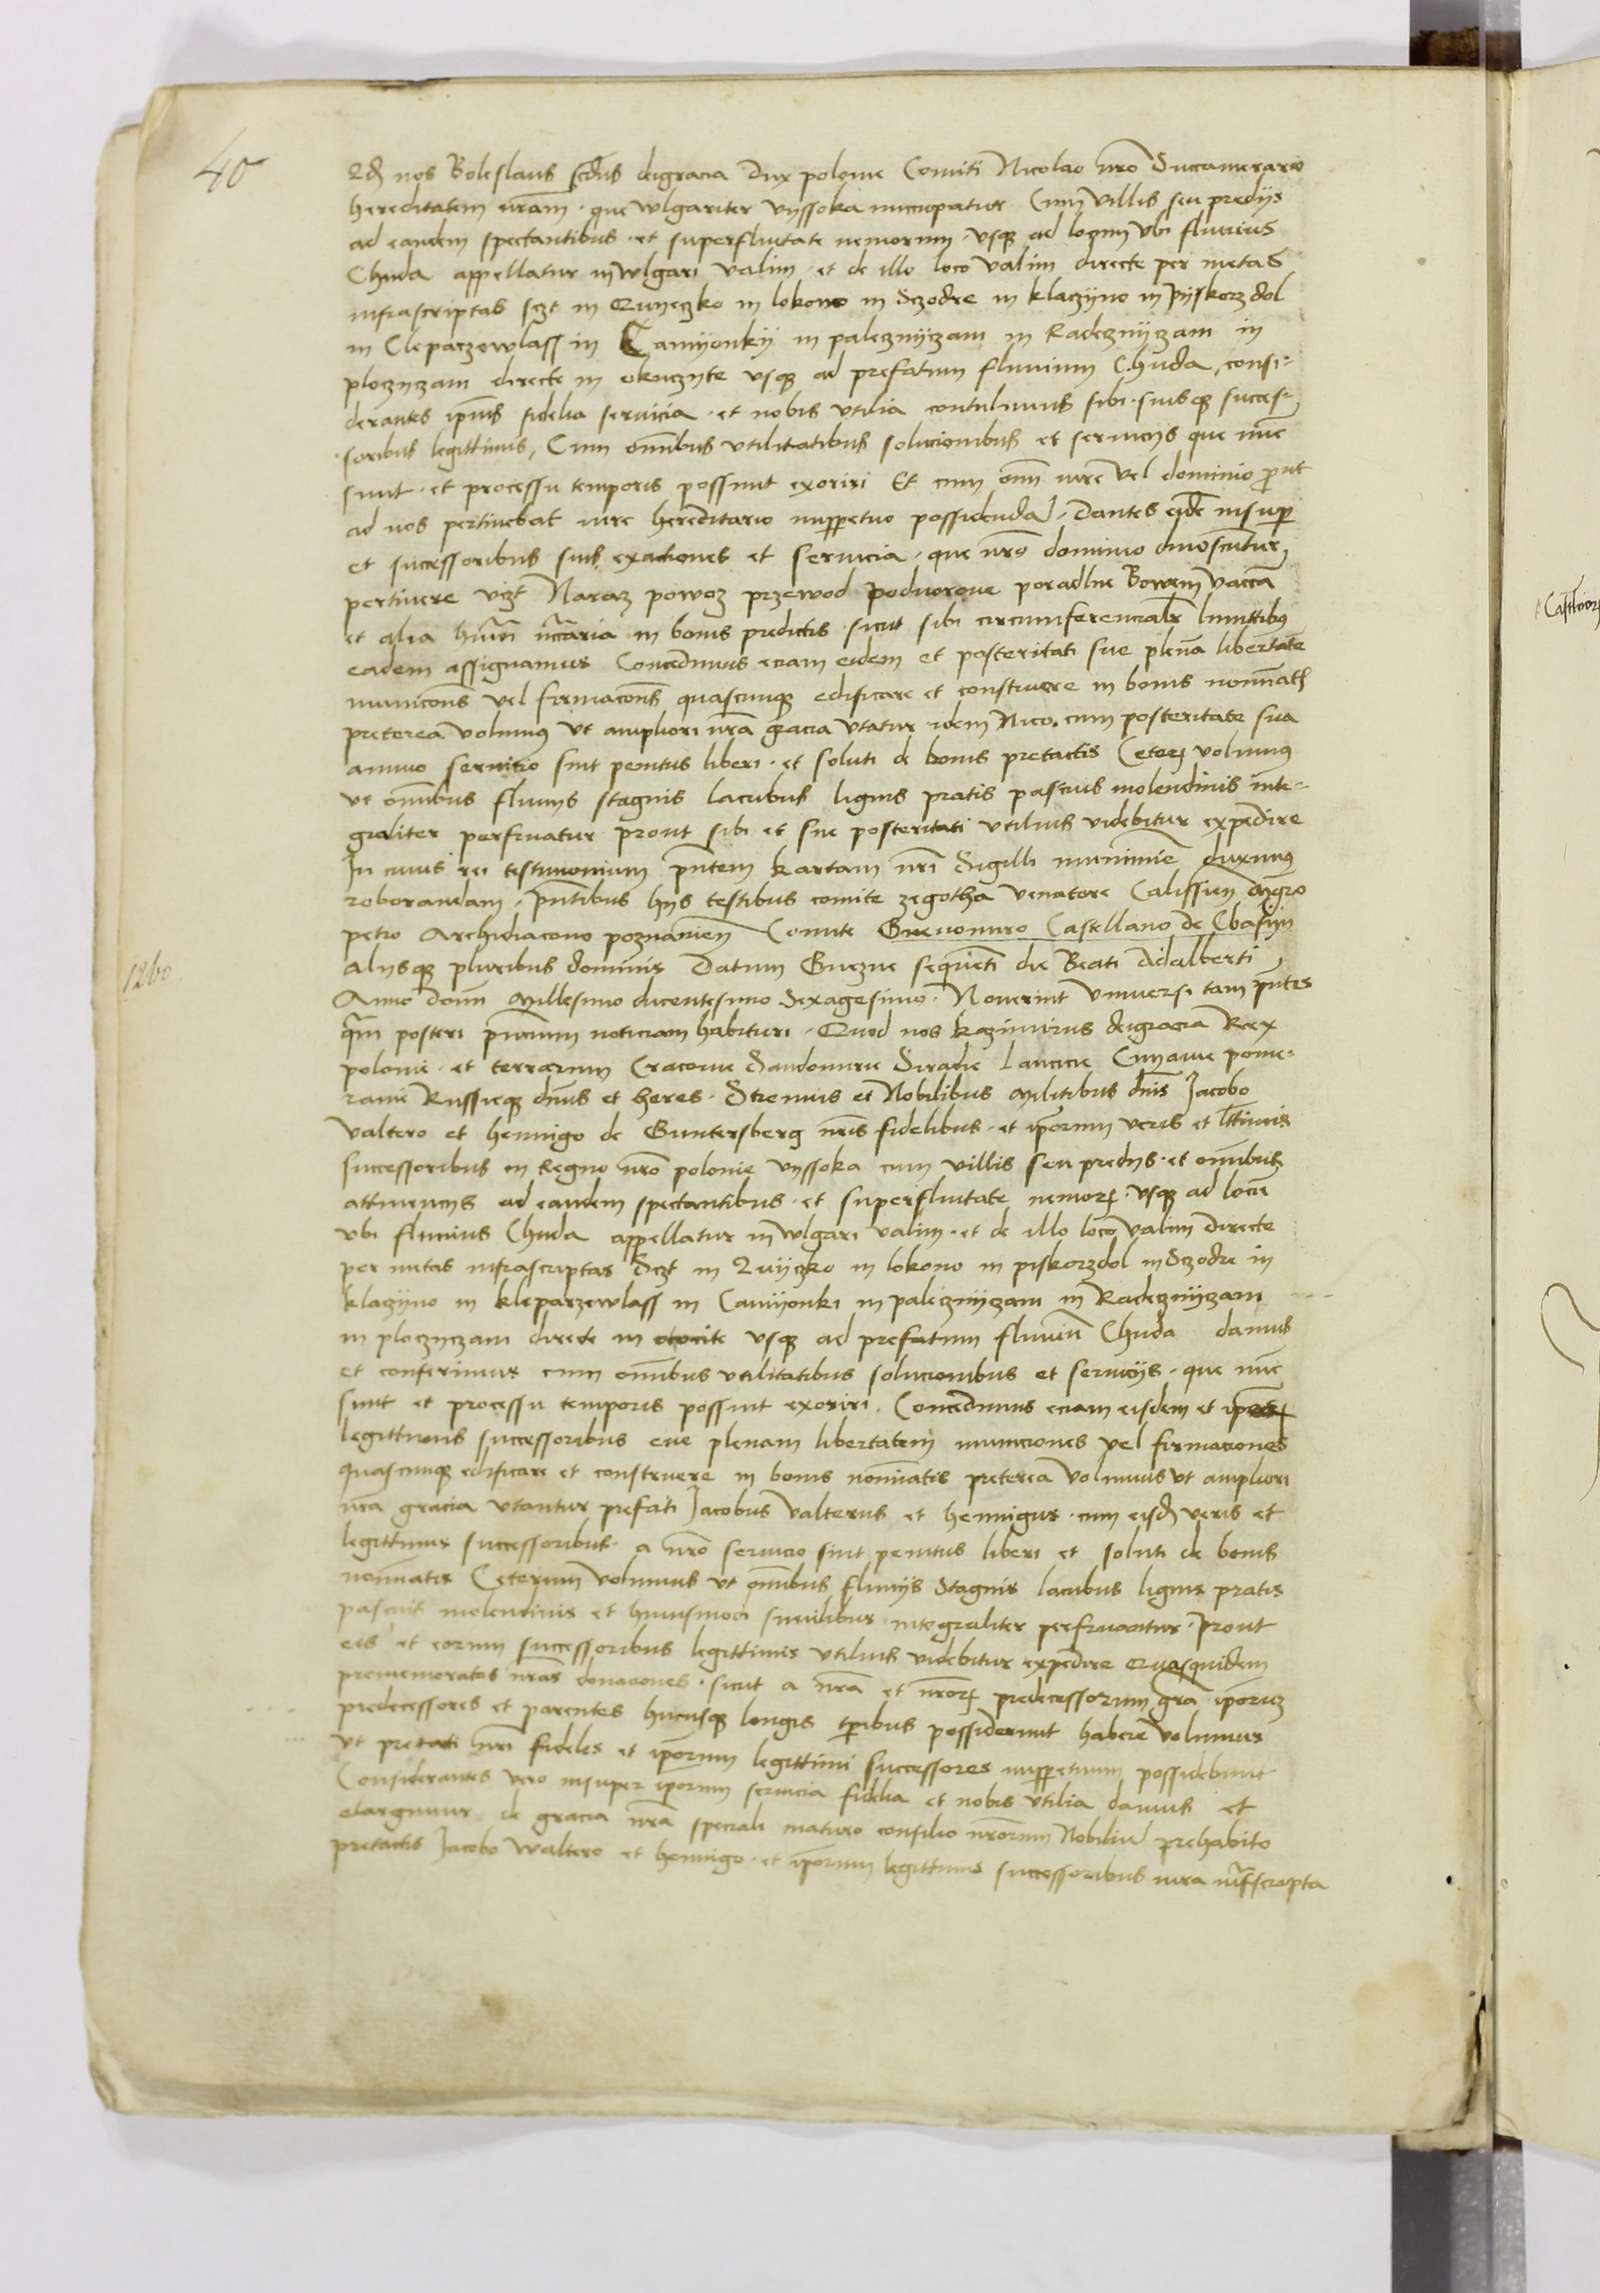 40
Qd nos Boleslaus scdus deigracia Dux polonie Comiti Nicolao nro Succamerario
hereditatem nram · que wlgariter vyssoka nuncupatur Cum villis seu predijs
ad eandem spectantibus · et superfluitate nemorum · vsq ad locum vbi fluuius
Chuda appellatur in wlgari valim · et de illo loco valim directe per metas
infrascriptas sczt in Quyeczko in lokono in Sczodre in klaczyno in Pyskorzdol
in Cleparzewlass in Camyonky in paleznyczam in Radeznyczam in
ploczyczam directe in okoczyte vsq ad prefatum fluuium Chuda, consi-
derantes ipius fidelia seruicia · et nobis vtilia contulimus sibi · suisq succes-
soribus legittimis, Cum omibus vtilitatibus solucionibus et seruicijs que nunc
sunt · et processu temporis possunt exoriri Et cum omi iure vel dominio prout
ad nos pertinebat iure hereditario inperpetuo possidenda, Dantes eidem insup
et successoribus suis exactiones et seruicia · que nro dominio dinoscuntur
pertinere vizt Naraz powoz przewod poduorove poradlne Bowem vaccam
et alia hui ncaria in bonis predictis sicut sibi circumferencialr limitibus
eadem assignamus Concedimus eciam eidem et posteritati sue plenam libertatem
municones vel firmacones quascunq edificare et construere in bonis nominatis
preterea volumus vt ampliori nra gracia vtatur idem Nico. cum posteritate sua
a nrno seruitio sint penitus liberi · et soluti de bonis pretactis Ceterum volumus
vt omibus fluuijs stagnis lacubus lignis pratis pascuis molendinis inte-
graliter perfruatur prout sibi et sue posteritati vtilius videbitur expedire
In cuius rei testimonium pntem kartam nri Sigilli munimine duximus
roborandam, pntibus hijs testibus comite zegotha venatore Calissien Mgro
petro Archidiacono poznanien Comite Gneuomiro Castellano de
1260.
alijsq pluribus dominis Datum Gnezne sequenti die Beati Adalberti,
Anno domi Millesimo ducentesimo Sexagesimo · Nouerint Vniuersi tam pntes
qm posteri pncium noticiam habituri · Quod nos kazimirus deigracia Rex
polonie · et terrarum Cracouie Sandomirie Siradie Lancicie Cuyauie pome-
ranie Russieq dnus et heres · Strenuis et Nobilibus Militibus dnis Jacobo
valtero et hennigo de Guntersberg nris fidelibus · et iporum veris et lttimis
successoribus in Regno nro polonie vyssoka cum villis seu predijs · et omibus
attinencijs ad eandem spectantibus · et superfluitate nemor · vsq ad locum
vbi fluuius Chuda appellatur in wlgari valim · et de illo loco valim directe
per metas infrascriptas Sczt in Quyczko in lokono in piskorzdol in Sczodre in
klaczyno in kleparzewlass in Camyonki in paleznyczam in Radeznyczam
in ploczyczam directe in vsq ad prefatum fluuium Chuda damus
et conferimus cum omibus vtilitatibus solucionibus et seruicijs · que nunc
sunt et processu temporis possunt exoriri. Concedimus eciam eisdem et
legittimis successoribus eue plenam libertatem municiones vel firmaciones
quascunq edificare et construere in bonis nominatis preterea volumus vt ampliori
nra gracia vtantur prefati Jacobus valterus et hennigus · cum eisd veris et
legittimis successoribus · a nro seruicio sint penitus liberi et soluti de bonis
nominatis Ceterum volumus vt omibus fluuijs Stagnis lacubus lignis pratis
pascuis molendinis et huiusmodi similibus integraliter perfruantur · Prout
eis et eorum successoribus legittimis vtilius videbitur expedire Quasquidem
prememoratas nras donaciones · sicut a nra et nror predecessorum gra iporum
predecessores et parentes hucusq longis tpribus possiderunt habere volumus
vt pretati nri fideles et iporum legittimi successores inperpetuum possidebunt
Considerantes vero insuper iporum seruicia fidelia et nobis vtilia damus et
elargimur de gracia nra speciali maturo consilio nrorum Nobilium prehabito
pretactis Jacobo Waltero et hennigo · et iporum legittimis successoribus iura infrscripta